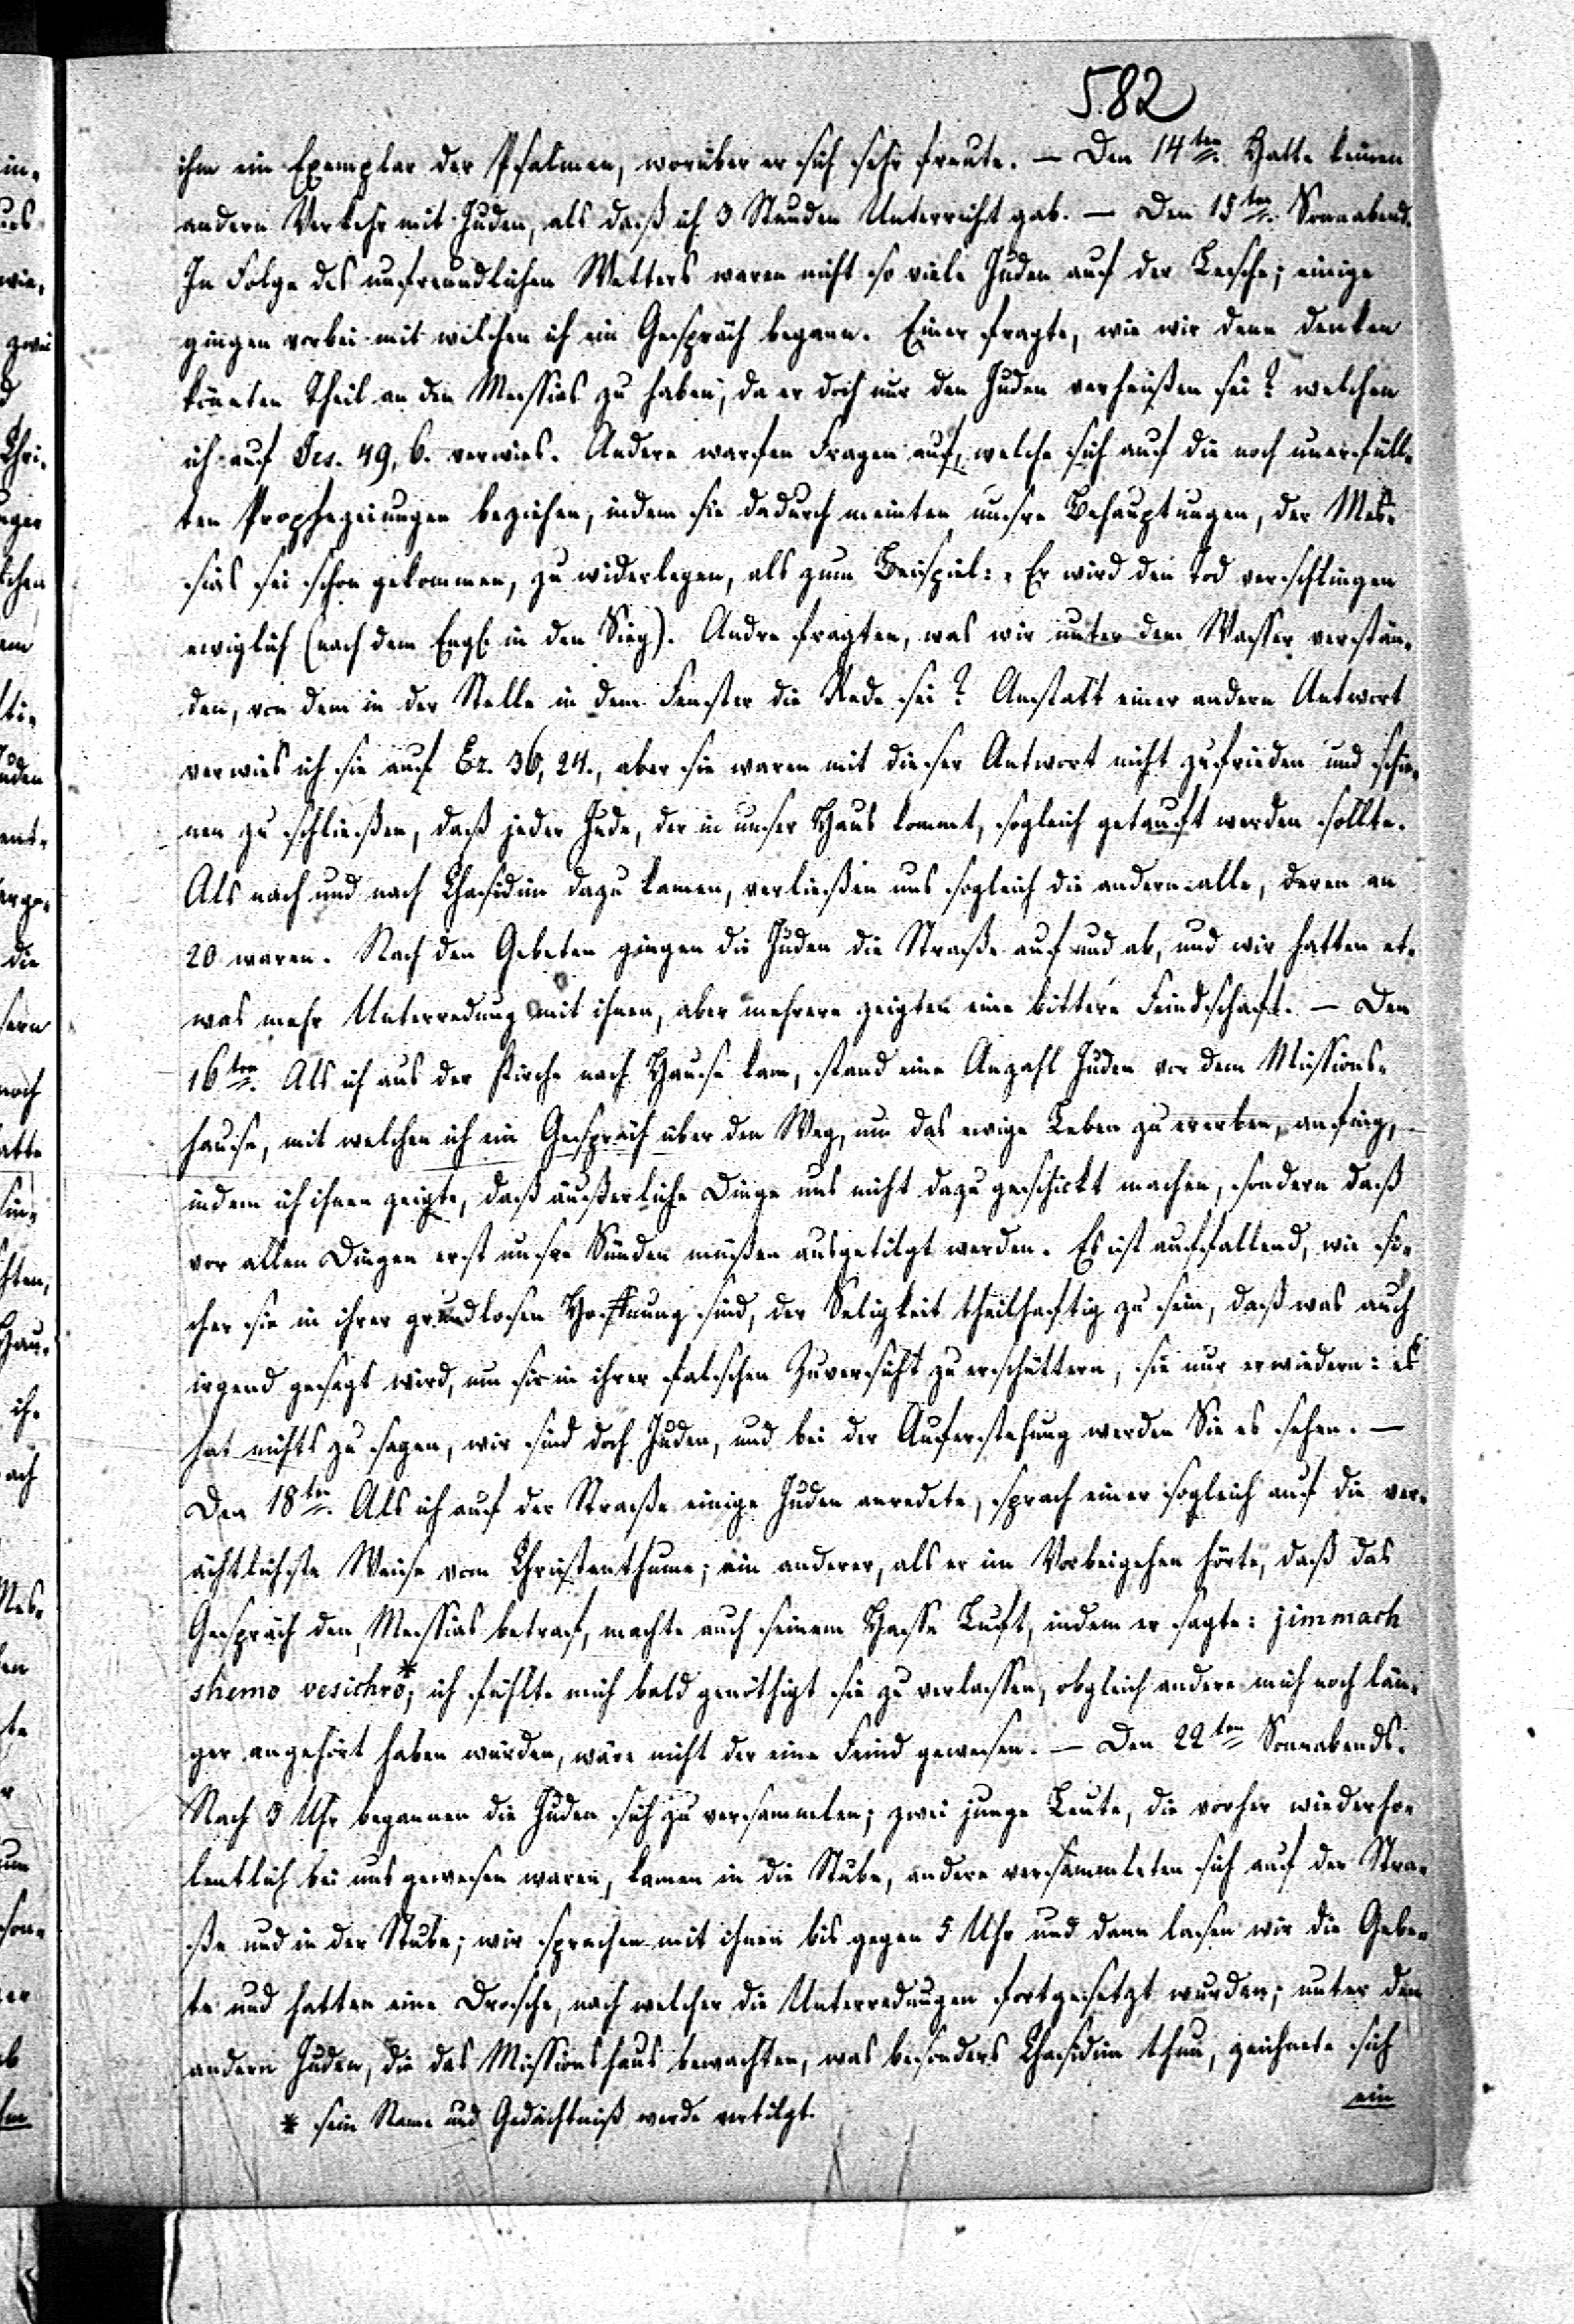 582
ihm ein Exemplar der Psalmen, worüber er sich sehr freute. — Den 14ten. Hatte keinen
andern Verkehr mit Juden, als daß ich 3 Stunden Unterricht gab. — Den 15ten. Sonnabend.
In Folge des unfreundlichen Wetters waren nicht so viele Juden auf der Lesche; einige
gingen vorbei mit welchen ich ein Gespräch begann. Einer fragte, wie wir denn denken
könnten Theil an den Messias zu haben, da er doch nur den Juden verheißen sei? welchen
ich auf Jes. 49, 6. verwies. Andere warfen Fragen auf, welche sich auf die noch unerfüll-
ten Prophezeiungen beziehen, indem sie dadurch meinten unsre Behauptungen, der Mes-
sias sei schon gekommen, zu widerlegen, als zum Beispiel: Er wird den Tod verschlingen
ewiglich (nach dem Engl. in den Sieg). Andre fragten, was wir unter dem Wasser verstän-
den, von dem in der Stelle in dem Fenster die Rede sei? Anstatt einer andern Antwort
verwies ich sie auf Ez. 36, 24., aber sie waren mit dieser Antwort nicht zufrieden und schie-
nen zu schließen, daß jeder Jude, der in unser Haus kommt, sogleich getauft werden sollte.
Als nach und nach Chasidim dazu kamen, verließen uns sogleich die andern alle, deren an
20 waren. Nach den Gebeten gingen die Juden die Straße auf und ab, und wir hatten et-
was mehr Unterredung mit ihnen, aber mehrere zeigten eine bittere Feindschaft. — Den
16ten. Als ich aus der Kirche nach Hause kam, stand eine Anzahl Juden vor dem Missions-
hause, mit welchen ich ein Gespräch über den Weg, um das ewige Leben zu ererben, anfing,
indem ich ihnen zeigte, daß äußerliche Dinge uns nicht dazu geschickt machen, sondern daß
vor allen Dingen erst unsre Sünden müßen ausgetilgt werden. Es ist auffallend, wie si-
cher sie in ihrer grundlosen Hoffnung sind, der Seligkeit theilhaftig zu sein, daß was auch
irgend gesagt wird, um sie in ihrer falschen Zuversicht zu erschüttern, sie nur erwiedern: es
hat nichts zu sagen, wir sind doch Juden, und bei der Auferstehung werden Sie es sehen. —
Den 18ten. Als ich auf der Straße einige Juden anredete, sprach einer sogleich auf die ver-
ächtlichste Weise vom Christenthume; ein anderer, als er im Vorbeigehen hörte, daß das
Gespräch den Messias betraf, machte auch seinem Hasse Luft, indem er sagte: jimmach
shemo vesichro*; ich fühlte mich bald genöthigt sie zu verlassen, obgleich andere mich noch län-
ger angehört haben würden, wäre nicht der eine Feind gewesen. — Den 22ten Sonnabends.
Nach 3 Uhr begannen die Juden sich zu versammlen; zwei junge Leute, die vorher wiederho-
lentlich bei uns gewesen waren, kamen in die Stube, andere versammleten sich auf der Stra-
ße und in der Stube; wir sprachen mit ihnen bis gegen 5 Uhr und dann lasen wir die Gebe-
te und hatten eine Drosche, nach welcher die Unterredungen fortgesetzt wurden; unter den
andern Juden, die das Missionshaus bewachten, was besonders Chasidim thun, zeichnete sich
ein
* sein Name und Gedächtniß werde vertilgt.